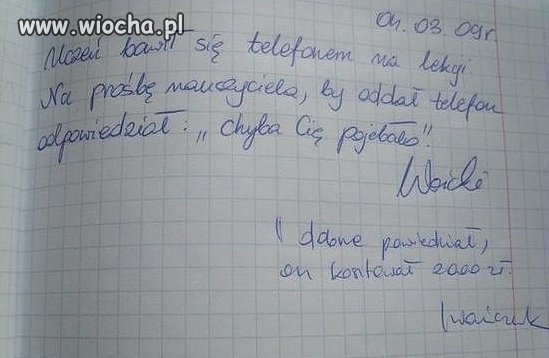 www.wiocha.pl
04.03.09r.
Uczeń bawił się telefonem na lekcji.
Na prośbę nauczyciela, by oddał telefon
odpowiedział: „Chyba Cię pojebało".
powiedział,
on kosztował 2000 zł.